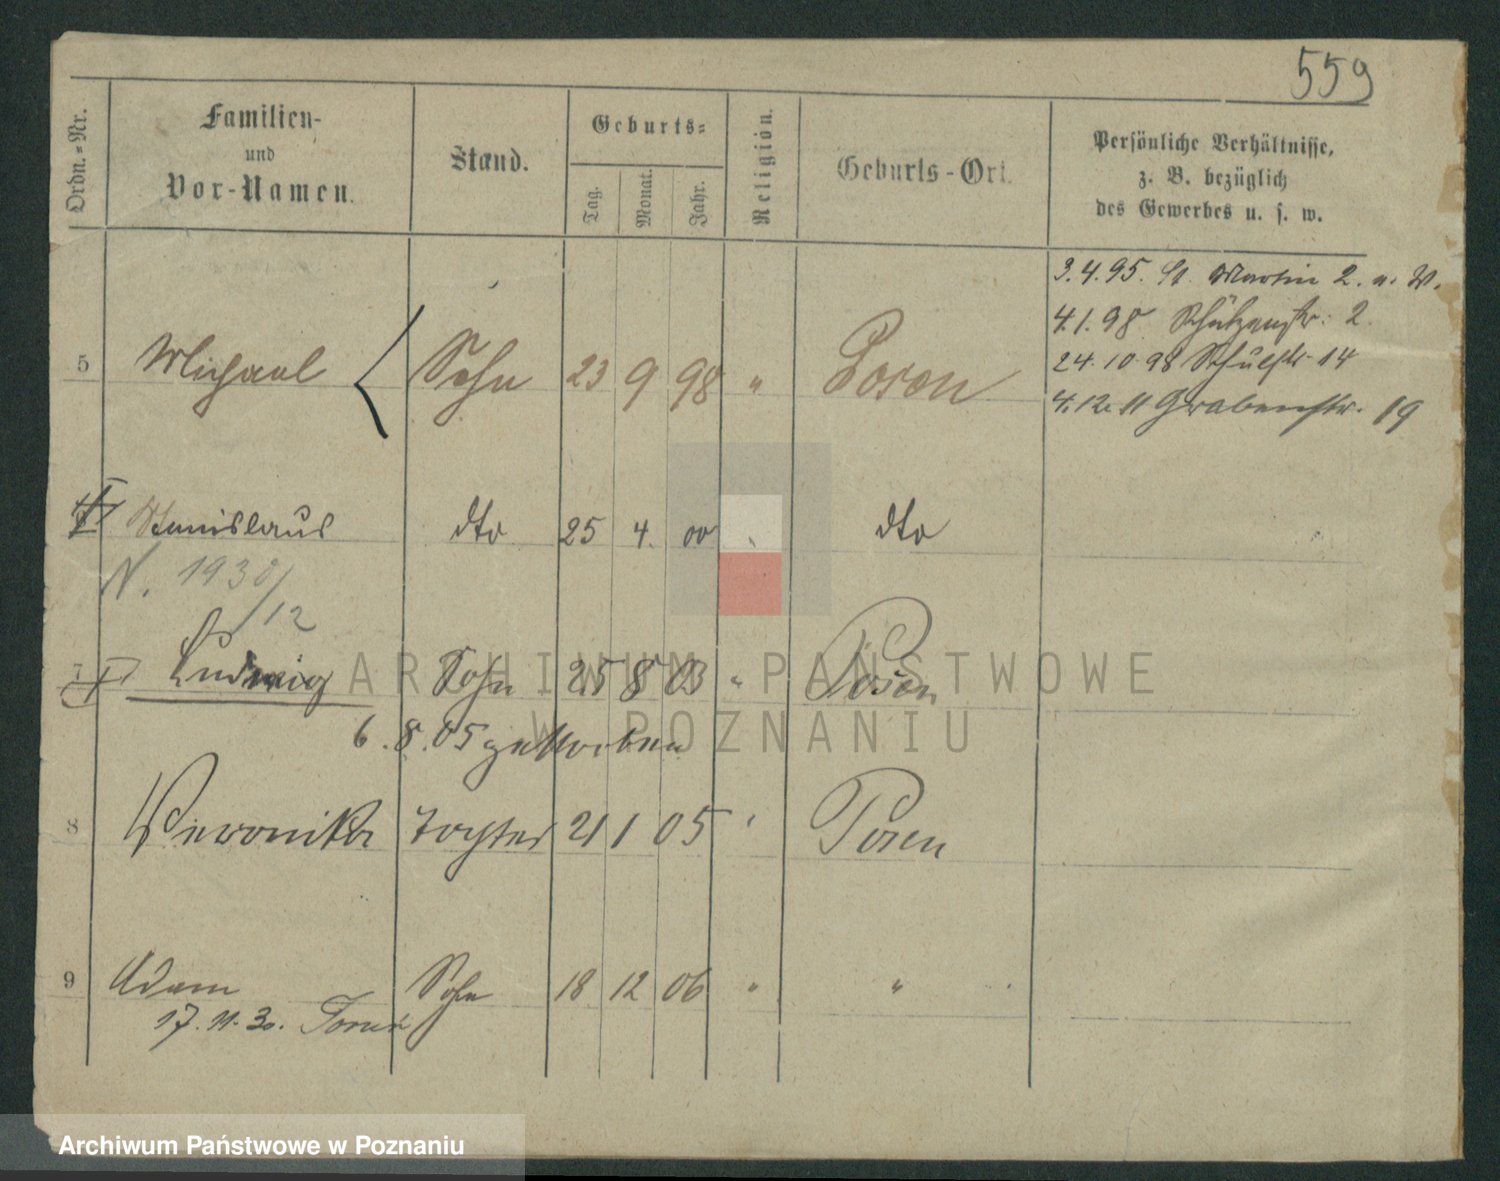 559
Ordn.-Nr.
Familien-
und
Vor-Namen.
Stand.
Geburts-
Tag.
Monat.
Jahr.
Religion.
Geburts-Ort.
Persönliche Verhältnisse,
z. B. bezüglich
des Gewerbes u. s. w.
3.4.95. St. Martin 2. u. W.
4.1.98 Schützenstr. 2.
24.10.98 Schulstr 14
4.12.11 Grabenstr. 19
5 Michael Sohn 23 9 98 " Posen
Stanislaus dto 25 4. 00 dto
N. 1930/12
7 Ludwig Sohn 25 8 03 " Posen
6.8.05 gestorben
8 Veronika Tochter 21 1 05 " Posen
9 Adam Sohn 18 12 06 " "
17.11.30. Toruń
ARCHIWUM PAŃSTWOWE
W POZNANIU
Archiwum Państwowe w Poznaniu